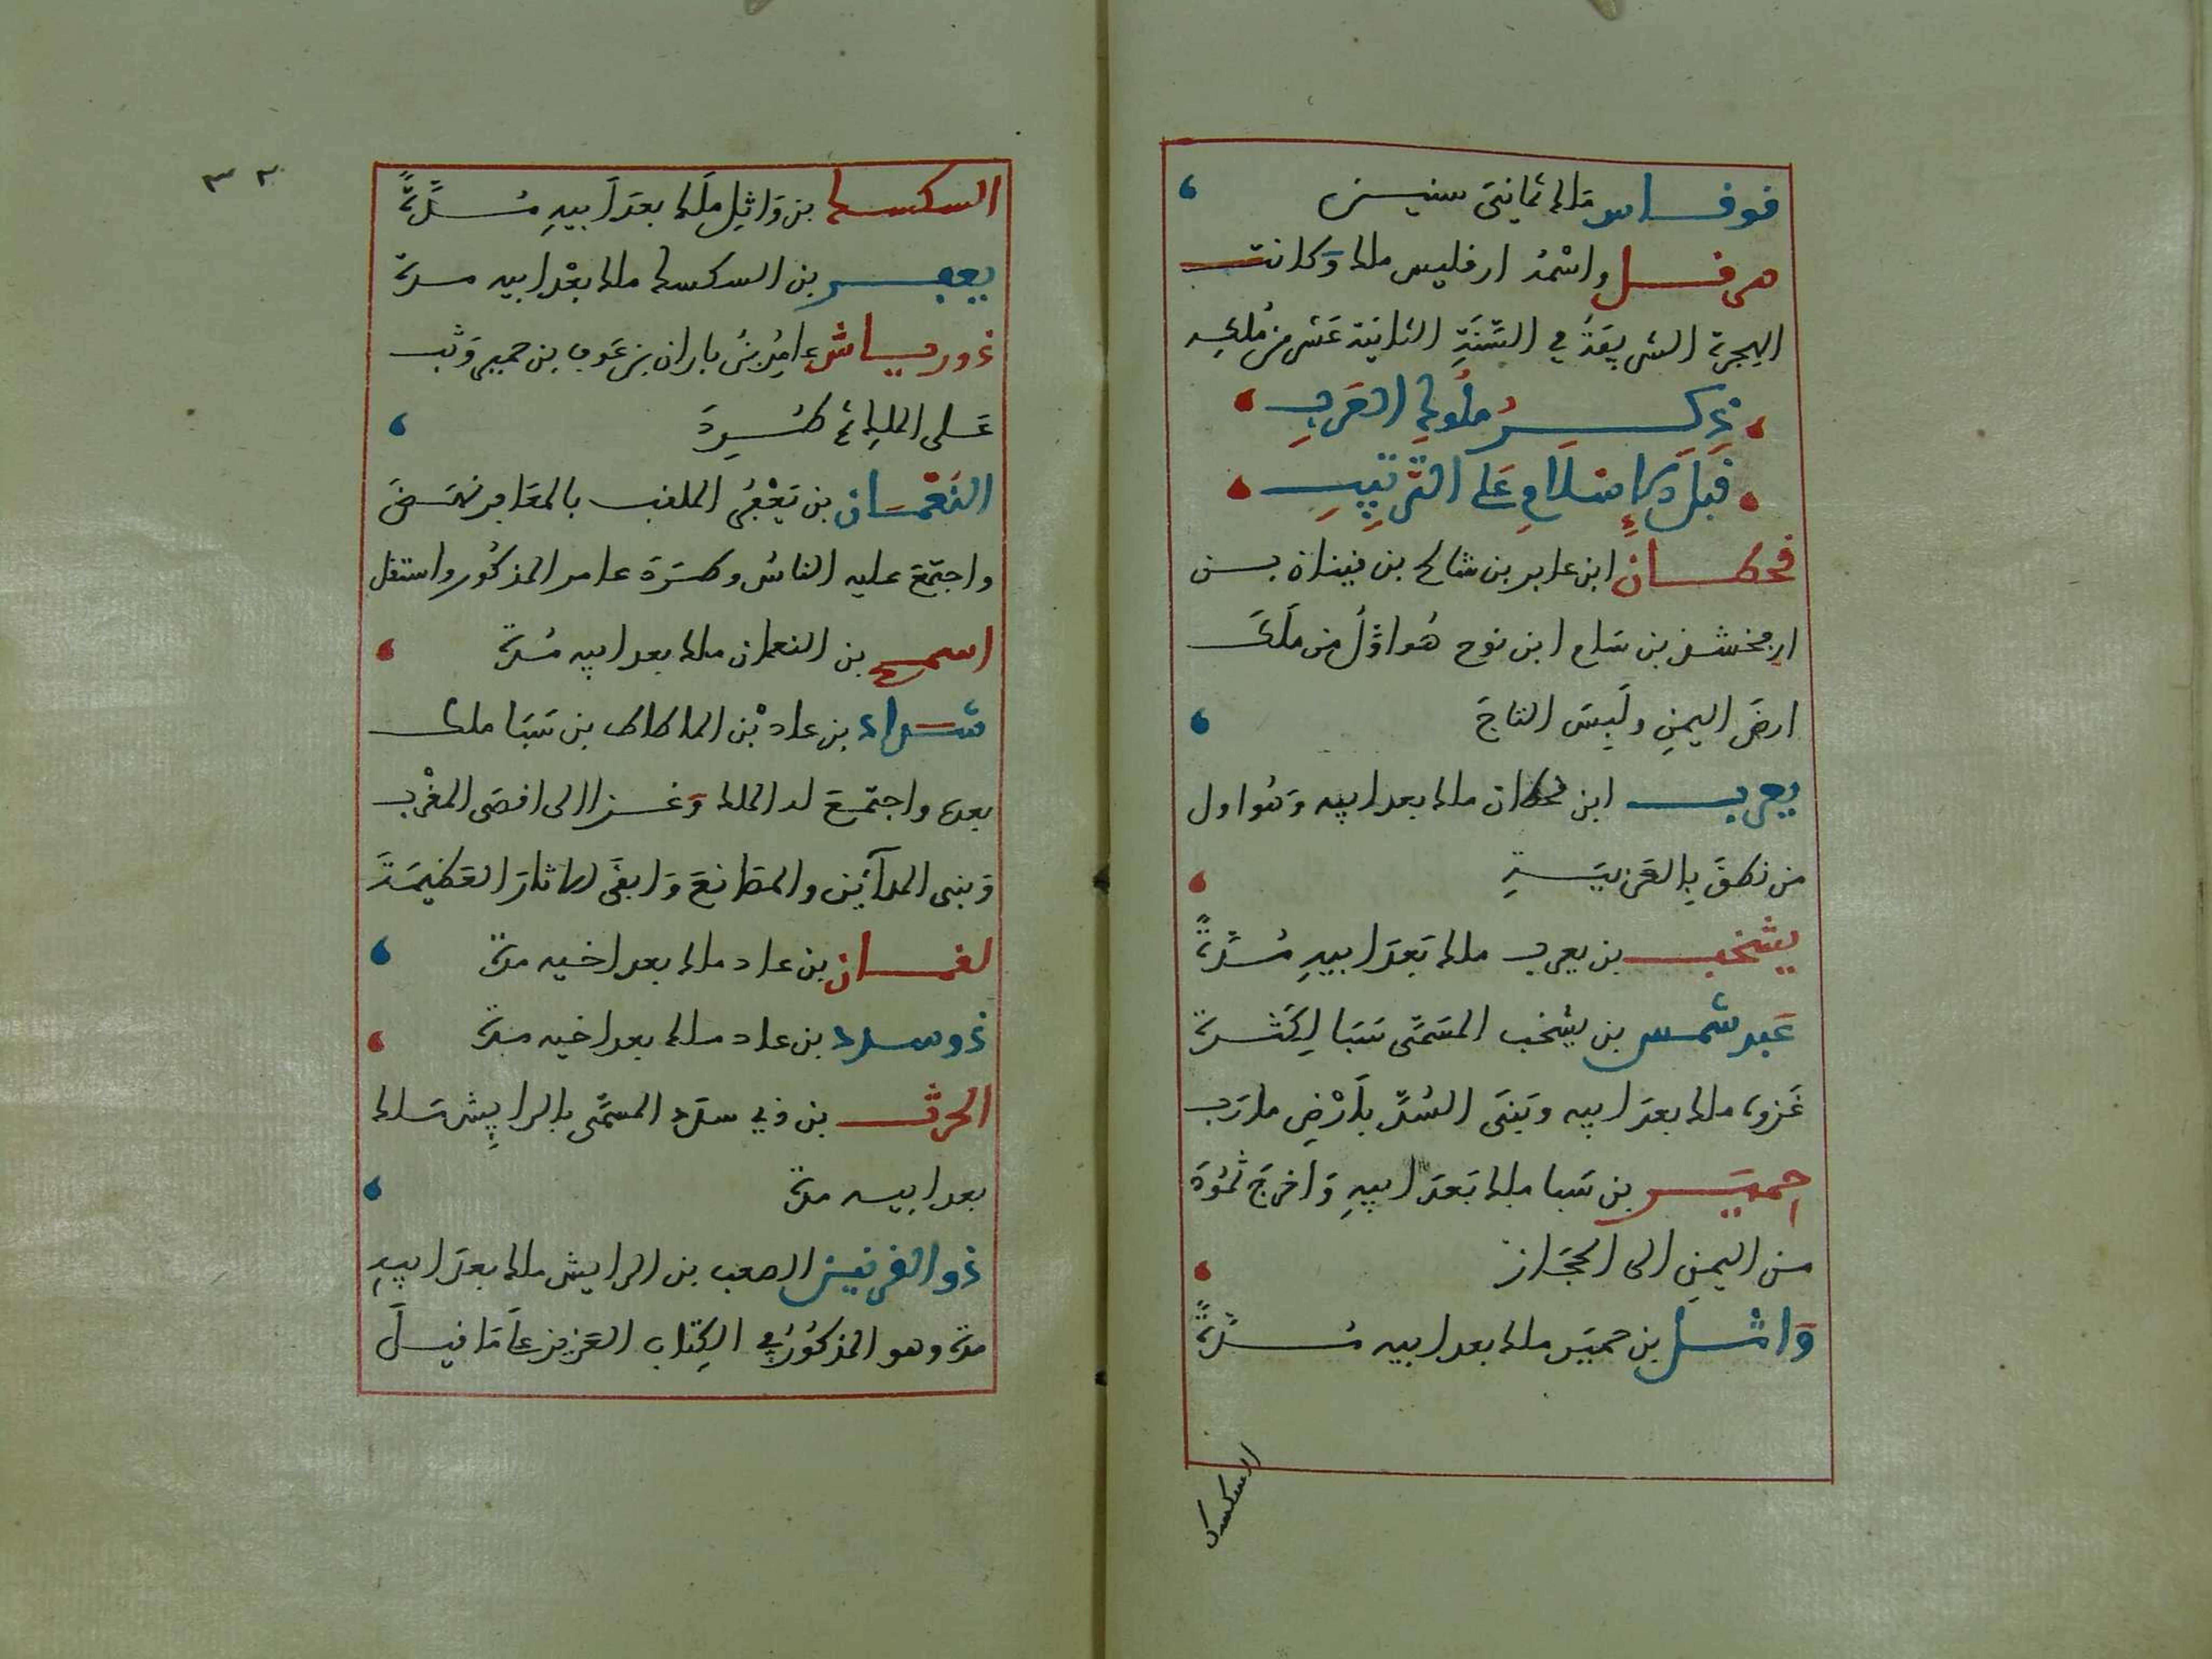 فوقاس ملك ثماني سنين
هرقل واسمه ارقليس ملك وكانت
الهجرة الشريفة في السَّنَةِ الثانية عشر من مُلكه
ذكر ملوك العرب
قبل الاسلام على الترتيب
قحطان ابن عابر بن شالخ بن قينان بن
ارفخشذ بن سام ابن نوح هُو اوّلُ من مَلَكَ
ارضَ اليمنِ ولَبِسَ التاجَ
يعرب ابن قحطان ملك بعد ابيه وهُو اول
من نطقَ بِالعَربيَةِ
يشخب بن يعرب ملك بَعدَ ابيهِ مُدَّةً
عبد شمس بن يشخب المسَمّى سَبَا لِكَثرة
غَزوه ملك بعدَ ابيه وبَنَى السُدّ بأَرْضِ مارَب
حمير بن سَبا ملك بَعدَ ابيهِ وَاخرَجَ ثَمُودَ
من اليمنِ الى الحجَاز
وَاثل بن حميَر ملك بعد ابيه مُدَّةً
السكسك
٣٢
السكسك بن وَاثِل مَلَك بعدَ اَبيهِ مُدَّةً
يعفر بن السكسك ملك بعْد ابيه مدة
ذورياش عامِرُ بنُ باران بن عَوف بن حمير وَثب
عَلى الملك ثم طُرِدَ
النعْمَان بن يَعْفُر الملقب بالمعَافر نهَضَ
واجتمَع عليه الناسُ وطَرَدَ عامر المذكُور واستقل
اسمح بن النعمان ملك بعد ابيه مُدة
شداد بن عاد بْن الماطاط بن سَبَا ملك
بعده واجتمَع له الملك وَغزا الى اقصَى المغْرب
وَبنى المدآئن والمصَانعَ وَابقَى الاثارَ العَظيمَةَ
لقمان بن عاد ملك بعد اخيه مدة
ذوسدد بن عاد ملك بعد اخيه مدة
الحرث بن ذي سدد المسمَّى بالرايِش ملك
بعد ابيه مدة
ذوالقرنين الصعب بن الرايش ملك بعدَ ابيهِ
مدة وهو المذكُورُ في الكِتاب العَزيز عَلَى مَا قيلَ